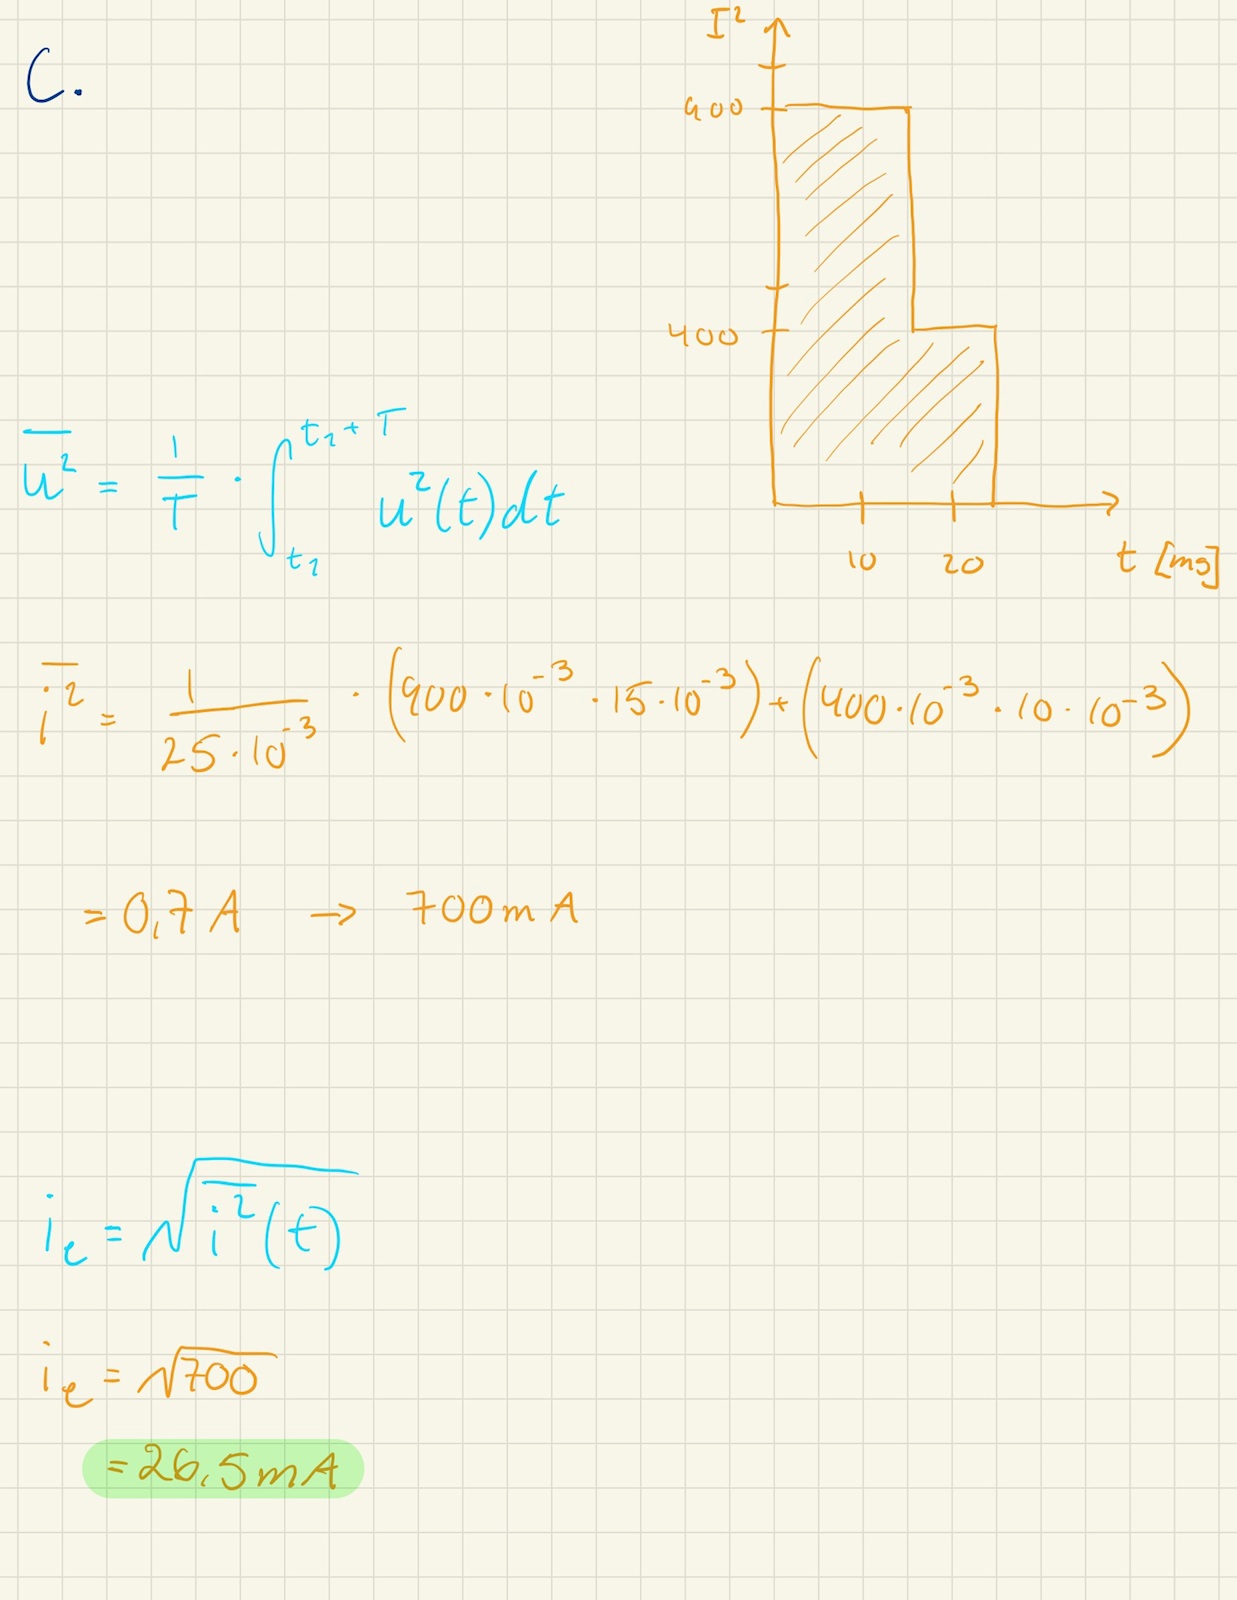 C.
I²
900
400
10 20 t [ms]
u̅² = 1/T · ∫_{t₁}^{t₁+T} u²(t)dt
i̅² = 1/(25·10⁻³) · (900·10⁻³·15·10⁻³) + (400·10⁻³·10·10⁻³)
= 0,7 A → 700 mA
i_e = √(i̅²(t))
i_e = √700
= 26,5 mA